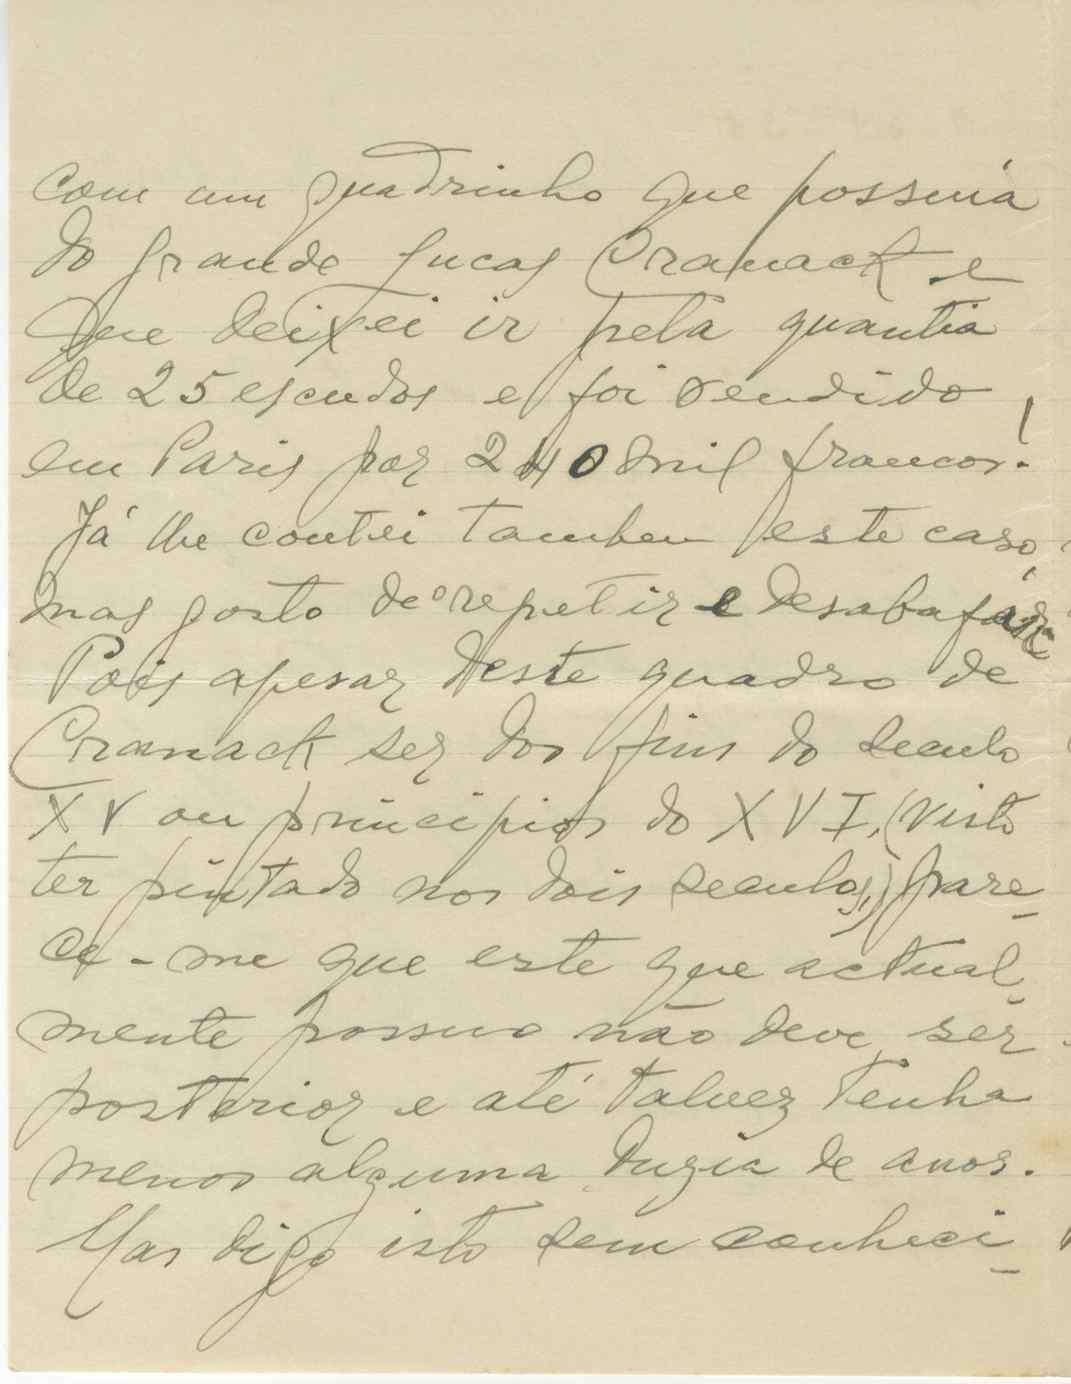 com um quadrinho que possuia
do grande Lucas Cranack e
que deixei ir pela quantia
de 25 escudos e foi vendido
em Paris por 240 mil francos!
Já lhe contei tambem este caso,
mas gosto de o repetir e desabafar.
Pois apesar deste quadro de
Cranack ser dos fins do seculo
XV ou principios do XVI, (visto
ter pintado nos dois seculos,) pare-
ce-me que este que actual-
mente possuo não deve ser
posterior e até talvez tenha
menos alguma duzia de anos.
Mas digo isto sem conheci-